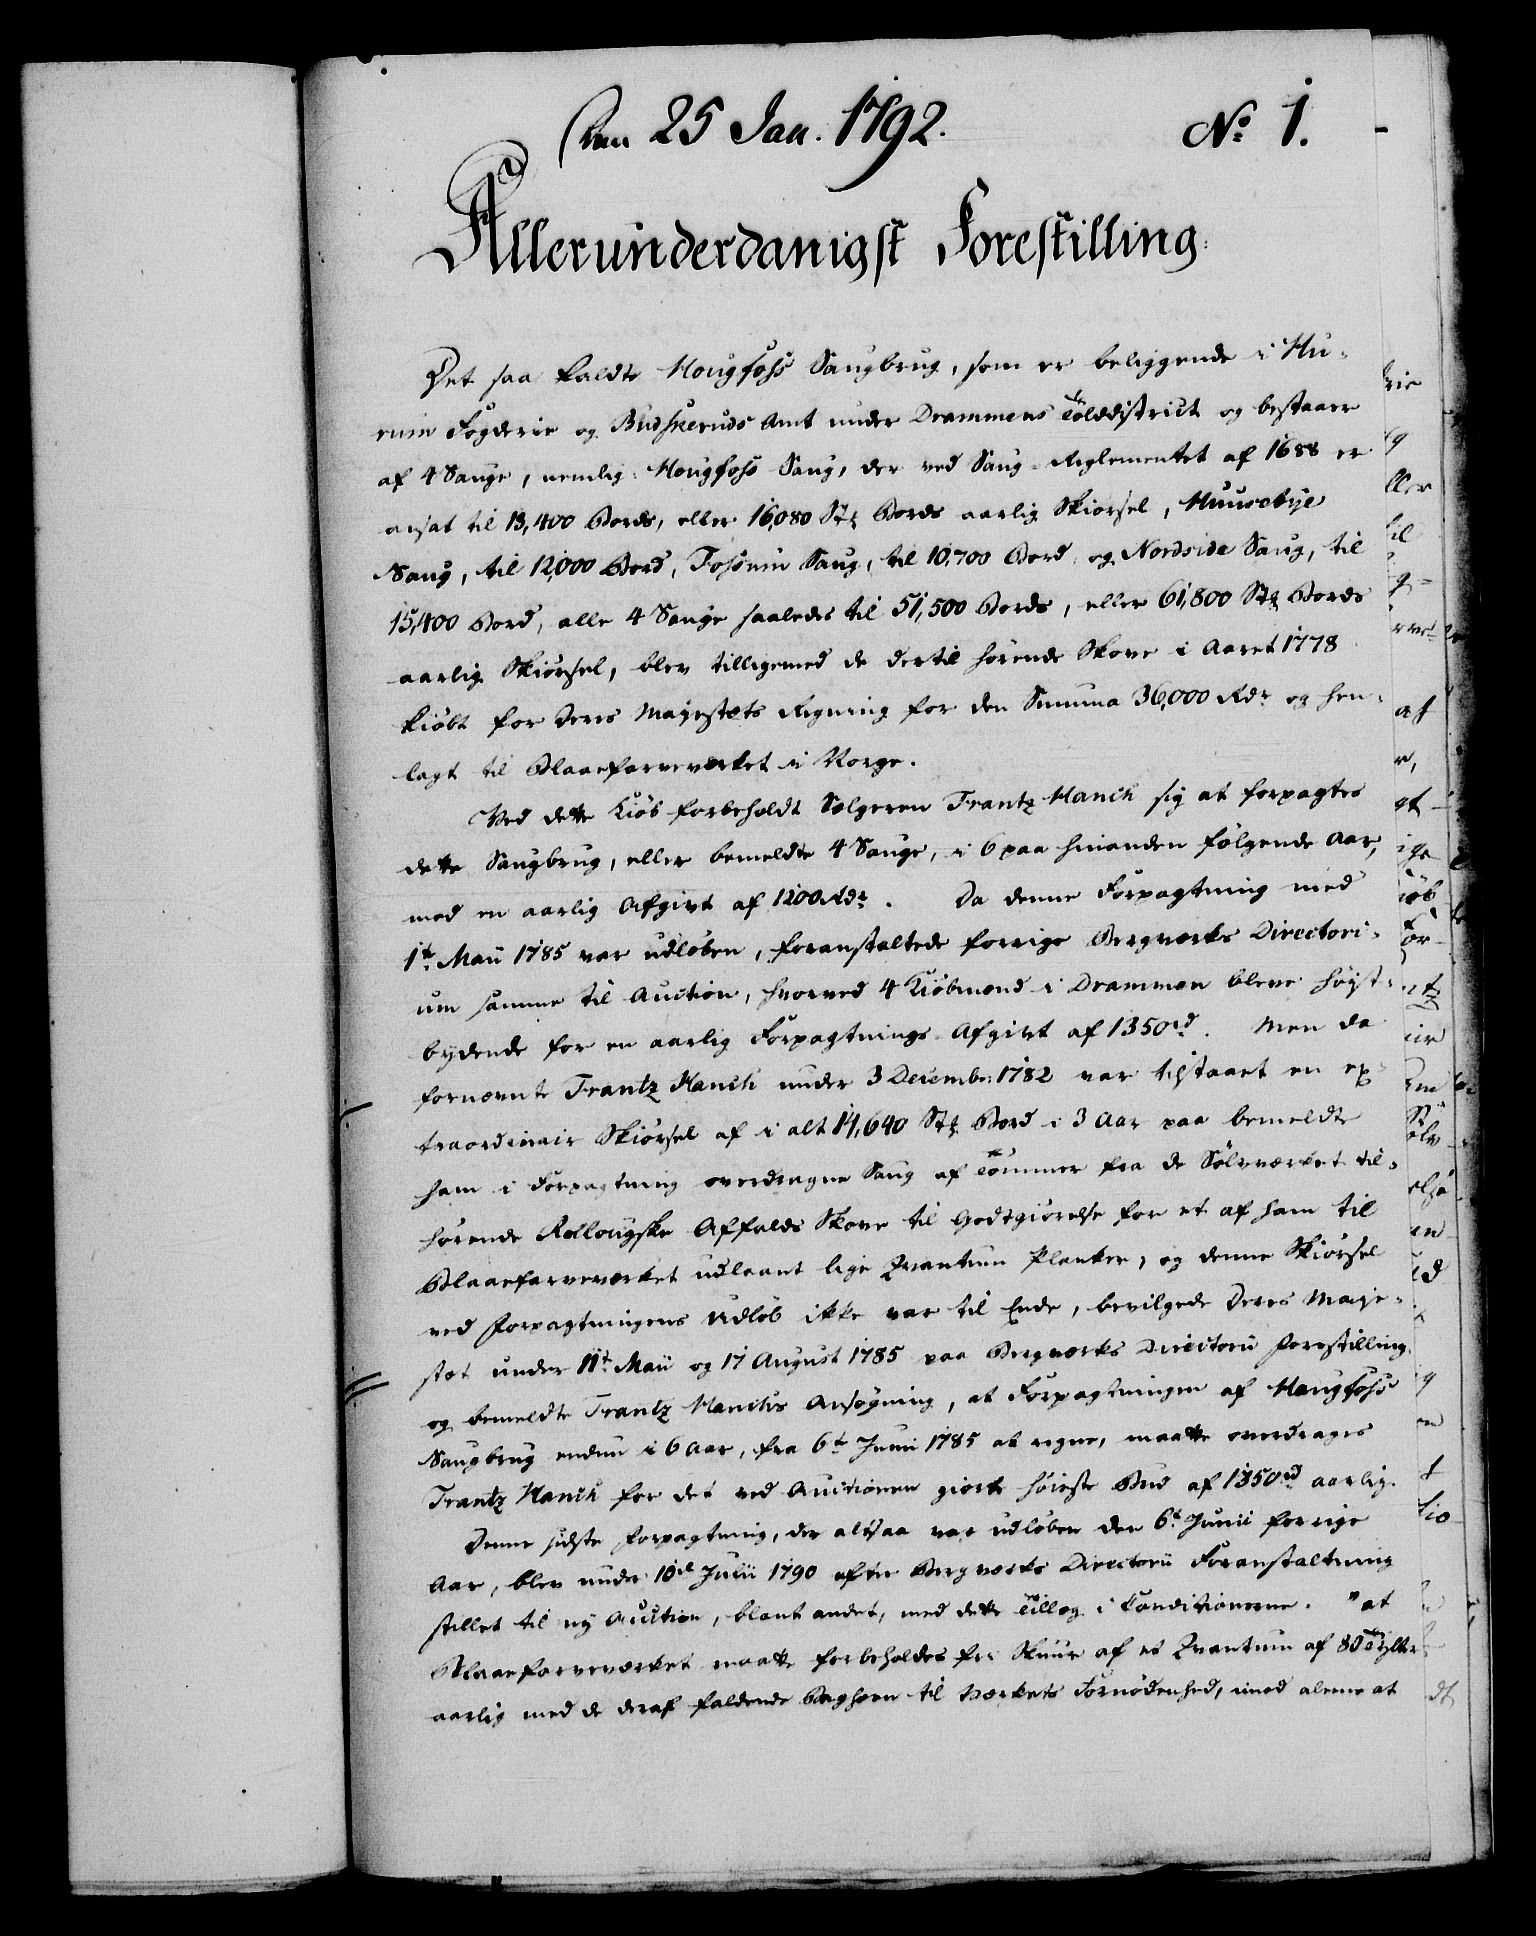 Den 25 Jan. 1792. No 1.
Allerunderdanigst Forestilling.
Det saa kaldte Hougfoss Saugbrug, som er beliggende i Bu-
rum Fogderie og Budskeruds Amt under Drammens Tolddistrict og bestaaer
af 4 Sauge, nemlig: Hougfoss Saug, der ved Saug-Reglementet af 1688 er
ansat til 13,400 Bords, eller 16,080 Stk Bords aarlig Skiørsel, Huusebye
Saug, til 12,000 Bord, Fossum Saug, til 10,700 Bord og Nordside Saug, til
15,400 Bord, alle 4 Sauge saaledes til 51,500 Bords, eller 61,800 Stk Bords
aarlig Skiørsel, blev tilligemed de dertil hørende Skove i Aaret 1778
kiøbt for Deres Majestæts Regning for den Summa 36,000 Rdr og hen-
lagt til Blaaefarveværket i Norge.
Ved dette Kiøb forbeholdt Sælgeren Frantz Hauch sig at forpagte
dette Saugbrug, eller bemeldte 4 Sauge, i 6 paa hinanden følgende Aar,
mod en aarlig Afgivt af 1200 Rdr. Da denne Forpagtning med
1te Maii 1785 var udløben, foranstaltede forrige Bergværks Directori-
um samme til Auction, hvorved 4 Kiøbmænd i Drammen bleve høist-
bydende for en aarlig Forpagtnings Afgivt af 1350 rd. Men da
fornævnte Frantz Hauch under 3 Decembr: 1782 var tilstaaet en ex-
traordinair Skiørsel af i alt 14,640 Stk Bord i 3 Aar paa bemeldte
ham i Forpagtning overdragne Saug af Tømmer fra de Sølvværket til-
hørende Rollougske Affalds Skove til Godtgiørelse for et af ham til
Blaaefarveværket udlaant lige Qvantum Planker, og denne Skiørsel
ved Forpagtningens Udløb ikke var til Ende, bevilgede Deres Maje-
stæt under 11te Maii og 17 August 1785 paa Bergværks Directorii Forestilling
og bemeldte Frantz Hauchs Ansøgning, at Forpagtningen af Hougfoss
Saugbrug endnu i 6 Aar, fra 6te Junii 1785 at regne, maatte overdrages
Frantz Hauch for det ved Auctionen giorte høieste Bud af 1350 rd aarlig.
Denne sidste Forpagtning, der altsaa var udløben den 6te Junii forrige
Aar, blev under 10de Julii 1790 efter Bergværks Directorii Foranstaltning
stillet til ny Auction, blant andet, med dette Tillæg i Conditionerne. "at
Blaaefarveværket maatte forbeholdes fri Skuur af et Qvantum af 80 Tylter
aarlig med de deraf faldende Baghoen til Værkets Fornødenhed, imod alene at